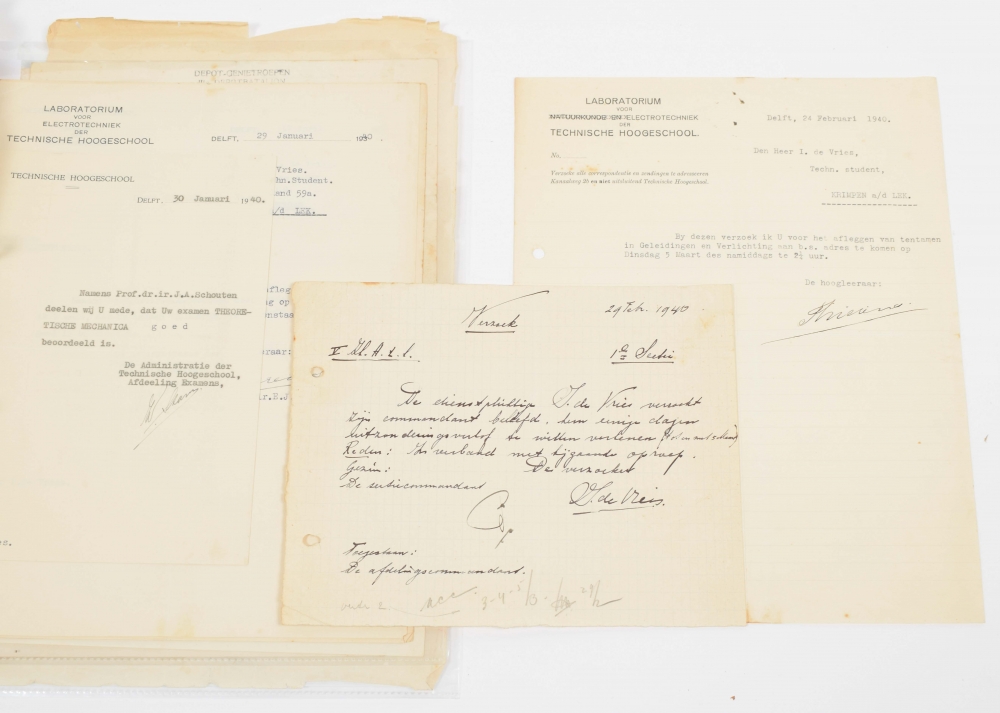 DEPOT-GENIETROEPEN
LABORATORIUM
VOOR
ELECTROTECHNIEK
DER
TECHNISCHE HOOGESCHOOL
DELFT, 29 Januari 1940.
Vries.
hn.Student.
and 59a.
/d LEK.
TECHNISCHE HOOGESCHOOL
DELFT, 30 Januari 1940.
Namens Prof.dr.ir.J.A.Schouten
deelen wij U mede, dat Uw examen THEORE-
TISCHE MECHANICA goed
beoordeeld is.
De Administratie der
Technische Hoogeschool,
Afdeeling Examens,
LABORATORIUM
VOOR
NATUURKUNDE EN ELECTROTECHNIEK
DER
TECHNISCHE HOOGESCHOOL.
No.
Verzoeke alle correspondentie en zendingen te adresseeren
Kanaalweg 2B en niet uitsluitend Technische Hoogeschool.
Delft, 24 Februari 1940.
Den Heer I. de Vries,
Techn. student,
KRIMPEN a/d LEK.
By dezen verzoek ik U voor het afleggen van tentamen
in Geleidingen en Verlichting aan b.a. adres te komen op
Dinsdag 5 Maart des namiddags te 7½ uur.
De hoogleeraar:
Verzoek
29 Feb. 1940
1e Sectie
De dienstplichtige I. de Vries verzoekt
zijn commandant beleefd, hem eenige dagen
uitzonderingsverlof te willen verleenen
Reden: In verband met bijgaande oproep.
Gezien: De verzoeker
De sectiecommandant
I. de Vries.
Toegestaan:
De afdelingscommandant.